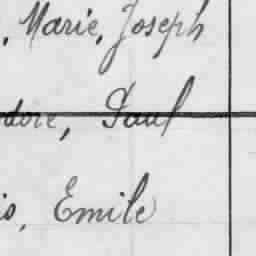 , Marie, Joseph
dore, Paul
is, Emile